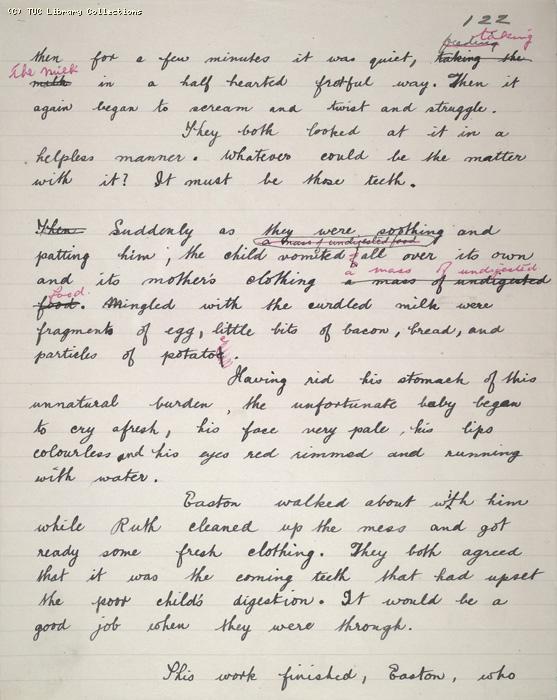 (C) TUC Library Collections
122
feeding taking
then for a few minutes it was quiet, taking the
the milk
milk in a half hearted fretful way. Then it
again began to scream and twist and struggle.
They both looked at it in a
helpless manner. Whatever could be the matter
with it? It must be those teeth.
Then Suddenly as they were soothing and
a mass of undigested food
patting him, the child vomited all over its own
a mass of undigested
and its mother's clothing a mass of undigested
food.
food. Mingled with the curdled milk were
fragments of egg, little bits of bacon, bread, and
particles of potatoe.
Having rid his stomach of this
unnatural burden, the unfortunate baby began
to cry afresh, his face very pale, his lips
colourless and his eyes red rimmed and running
with water.
Easton walked about with him
while Ruth cleaned up the mess and got
ready some fresh clothing. They both agreed
that it was the coming teeth that had upset
the poor child's digestion. It would be a
good job when they were through.
This work finished, Easton, who